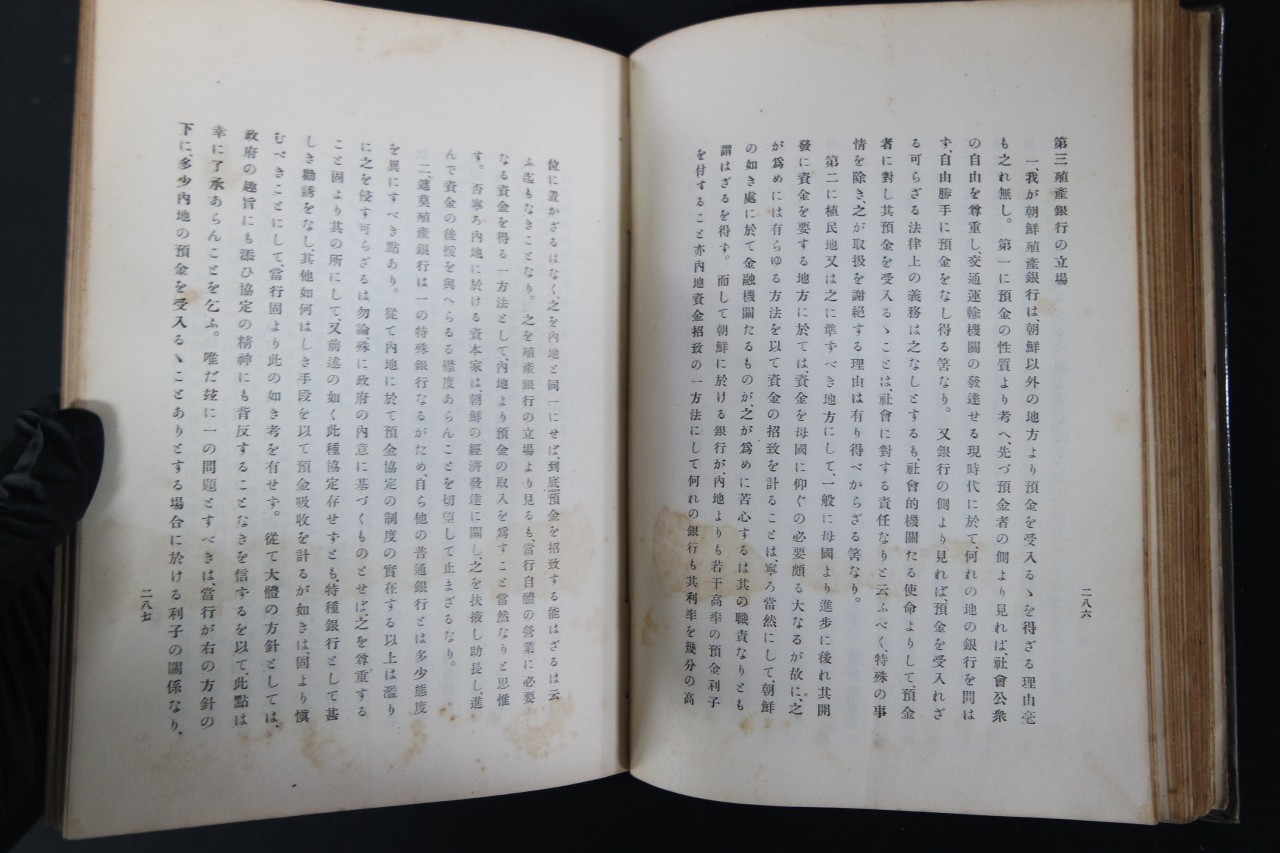 二八六
第三殖產銀行の立場
一、我が朝鮮殖產銀行は、朝鮮以外の地方より預金を受入るゝを得ざる理由毫
も之れ無し。第一に預金の性質より考へ、先づ預金者の側より見れば、社會公衆
の自由を尊重し、交通運輸機關の發達せる現時代に於て、何れの地の銀行を問は
ず、自由勝手に預金をなし得る筈なり。又銀行の側より見れば、預金を受入れざ
る可らざる法律上の義務は之なしとするも、社會的機關たる使命よりして預金
者に對し其預金を受入るゝことは、社會に對する責任なりと云ふべく、特殊の事
情を除き、之が取扱を謝絕する理由は有り得べからざる筈なり。
第二に植民地又は之に準すべき地方にして、一般に母國より進步に後れ其開
發に資金を要する地方に於ては、資金を母國に仰ぐの必要頗る大なるが故に、之
が爲めには有らゆる方法を以て資金の招致を計ることは、寧ろ當然にして、朝鮮
の如き處に於て金融機關たるものが、之が爲めに苦心するは其の職責なりとも
謂はざるを得す。而して朝鮮に於ける銀行が內地よりも若干高率の預金利子
を付すること亦內地資金招致の一方法にして何れの銀行も其利率を幾分の高
位に置かざるはなく、之を內地と同一にせば、到底預金を招致する能はざるは云
ふ迄もなきことなり。之を殖產銀行の立場より見るも、當行自體の營業に必要
なる資金を得る一方法として、內地より預金の取入を爲すこと當然なりと思惟
す。否寧ろ內地に於ける資本家は、朝鮮の經濟發達に關し、之を扶掖し助長し、進
んで資金の後援を與へらるる襟度あらんことを切望して止まざるなり。
二、遮莫殖產銀行は一の特殊銀行なるがため、自ら他の普通銀行とは多少態度
を異にすべき點あり。從て內地に於て預金協定の制度の實在する以上は濫り
に之を侵す可らざるは勿論、殊に政府の內意に基づくものとせば、之を尊重する
こと固より其の所にして、又前述の如く此種協定存せずとも、特種銀行として甚
しき勸誘をなし、其他如何はしき手段を以て預金吸收を計るが如きは、固より愼
むべきことにして、當行固より此の如き考を有せず。從て大體の方針としては、
政府の趣旨にも添ひ協定の精神にも背反することなきを信ずるを以て、此點は
幸に了承あらんことを乞ふ。唯だ玆に一の問題とすべきは、當行が右の方針の
下に、多少內地の預金を受入るゝことありとする場合に於ける利子の關係なり、
二八七